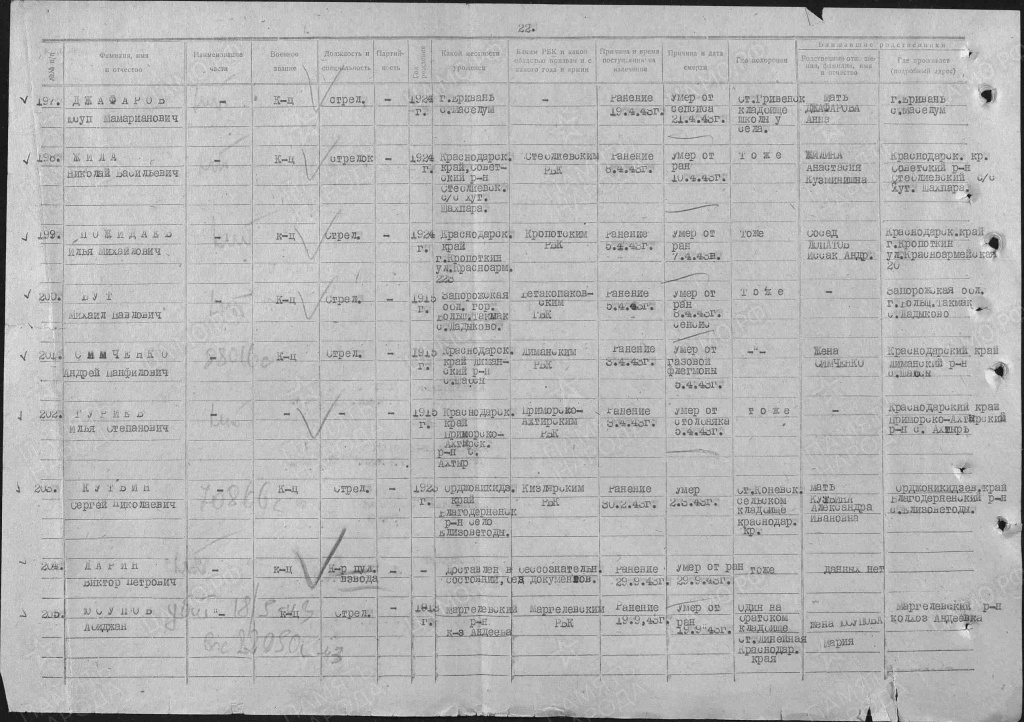 22.
Фамилия, имя и отчество
Наименование части
Военное звание
Должность и специальность
Партийность
Год рождения
Какой местности уроженец
Каким РВК и какой областью призван и с какого года в армии
Причина и время поступления
Причина и дата смерти
Где похоронен
Ближайшие родственники
Где проживает (подробный адрес)
197. ДЖАФАРОВ – К-ц стрел. – 1924 г.Еривань – Ранение Умер от ст.Гривенск мать г.Еривань
Юсуп Мамарианович г. с.Маселум 19.4.43г. сепсиса кладбище ДЖАФАРОВА с.Маселум
21.4.43г. школы у Анна
села.
198. ЖИЛА – К-ц стрелок – 1924 Краснодарск. Стеблиевским Ранение Умер от тоже ЖИЛИНА Краснодарск. кр.
Николай Васильевич г. край,Совет- РВК 8.4.43г. ран Анастасия Советский р-н
ский р-н 10.4.43г. Кузминишна Стеблиевский с/с
Стеблиевск. хут. Шахпара.
с/с хут.
Шахпара.
199. ПОЖИДАЕВ – к-ц Стрел. – 1924 Краснодарск. Кропоткским Ранение Умер от тоже Сосед Краснодарск.край
Илья Михайлович г. край РВК 5.4.43г. ран ЛОПАТОВ г.Кропоткин
г.Кропоткин 7.4.43г. Иссак Андр. ул.Красноармейская
ул.Красноарм. 20
228
200. БУТ – К-ц Стрел. – 1915 Запорожская Ранение Умер от тоже – Запорожская обл.
Михаил Павлович г. обл. гор. ским 5.4.43г. ран г.Больш.Такмак
Больш.Такмак РВК 8.4.43г. с.Шадыково
с.Шадыково. сепсис
201. СИМЧЕНКО К-ц Стрел. – 1915 Краснодарск. Лиманским Ранение Умер от -"- Жена Краснодарский край
Андрей Панфилович г. край Лиман- РВК 3.4.43г. газовой СИМЧЕНКО Лиманский р-н
ский р-н флегмоны
5.4.43г.
202. ГУРИЕВ – – – – 1915 Краснодарск. Приморско- Ранение Умер от тоже – Краснодарский край
Илья Степанович г. край Ахтирским 3.4.43г. столбняка Приморско-Ахтырский
Приморско- РВК 5.4.43г. р-н с. Ахтырь
Ахтырск.
р-н с.
Ахтыр
203. К-ц Стрел. – 1923 Орджоникидз. Кизлярским Ранение Умер ст.Коневск. мать Орджоникидзев.край
Сергей Николаевич г. край РВК 30.2.43г. 2.3.43г. сельском Благодерненский р-н
Благодерненск кладбище Александра с.Елизоветоды.
р-н село Краснодар. Ивановна
Елизоветоды. кр.
204. ЛАРИН – к-ц К-р пул. – – Доставлен в бессознательн. Ранение Умер от ран тоже данных нет
Виктор Петрович взвода состоянии,без документов. 29.9.43г. 29.9.43г.
205. ЮСУПОВ – к-ц Стрел. – 1913 Маргелевский Маргелевским Ранение Умер от один на Маргелевский р-н
Асиджан г. р-н РВК 19.9.43г. ран братском жена ЮСУПОВА колхоз Авдеевка
к-з Авдеева 19.9.43г. кладбище Мария
ст.Линейная
Краснодар.
края